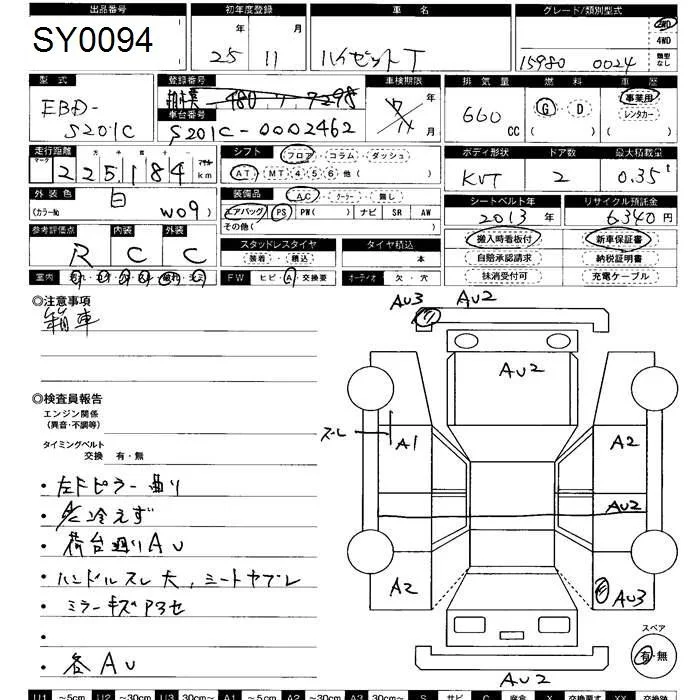 出品番号 初年度登録 車名 グレード/類別型式
SY0094 25年 11月 ハイゼットT 15980 0024 2WD 4WD 類型なし
型式 登録番号 車検期限 排気量 燃料 車歴
EBD-S201C 相模 480 ワ 7298 年 月 660CC G D 事業用 レンタカー
車台番号
S201C-0002462
走行距離 シフト フロア コラム ダッシュ ボディ形状 ドア数 最大積載量
マーク 十万千百十一 マイル
225184km AT MT 4 5 6 他( ) KVT 2 0.35t
外装色 装備品 A.C クーラー 無し シートベルト年 リサイクル預託金
白 (カラーNo W09) エアバッグ PS PW( ) ナビ SR AW 2013年 6340円
その他( )
参考評価点 内装 外装 スタッドレスタイヤ タイヤ積込 搬入時看板付 新車保証書
R C C 装着 積込 本 自賠承認請求 納税証明書
室内 FW ヒビ A 交換要 オーディオ 欠・穴 抹消受付可 充電ケーブル
◎注意事項
箱車
AU3 AU2
AU2
◎検査員報告
エンジン関係
(異音・不調等)
タイミングベルト
交換 有・無
ズレ A1 A2
・左Fピラー曲り
・A/C冷えず
・荷台廻りAU
AU2
・ハンドルスレ大,シートヤブレ
・ミラーキズアセ
A2 AU3
・
・各AU
スペア
有・無
AU2
U1 ~5cm U2 ~30cm U3 30cm~ A1 ~5cm A2 ~30cm A3 30cm~ S サビ C 腐食 X 交換要す XX 交換跡